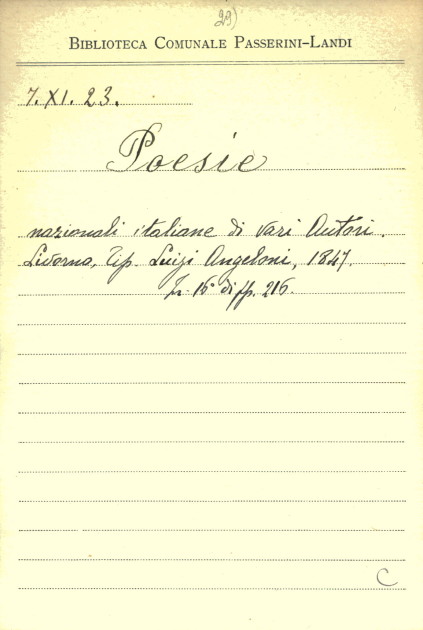 29)
BIBLIOTECA COMUNALE PASSERINI-LANDI
7. XI. 23.
Poesie
nazionali italiane di vari Autori.
Livorno, Tip. Luigi Angeloni, 1847.
In 16° di pp. 216.
C